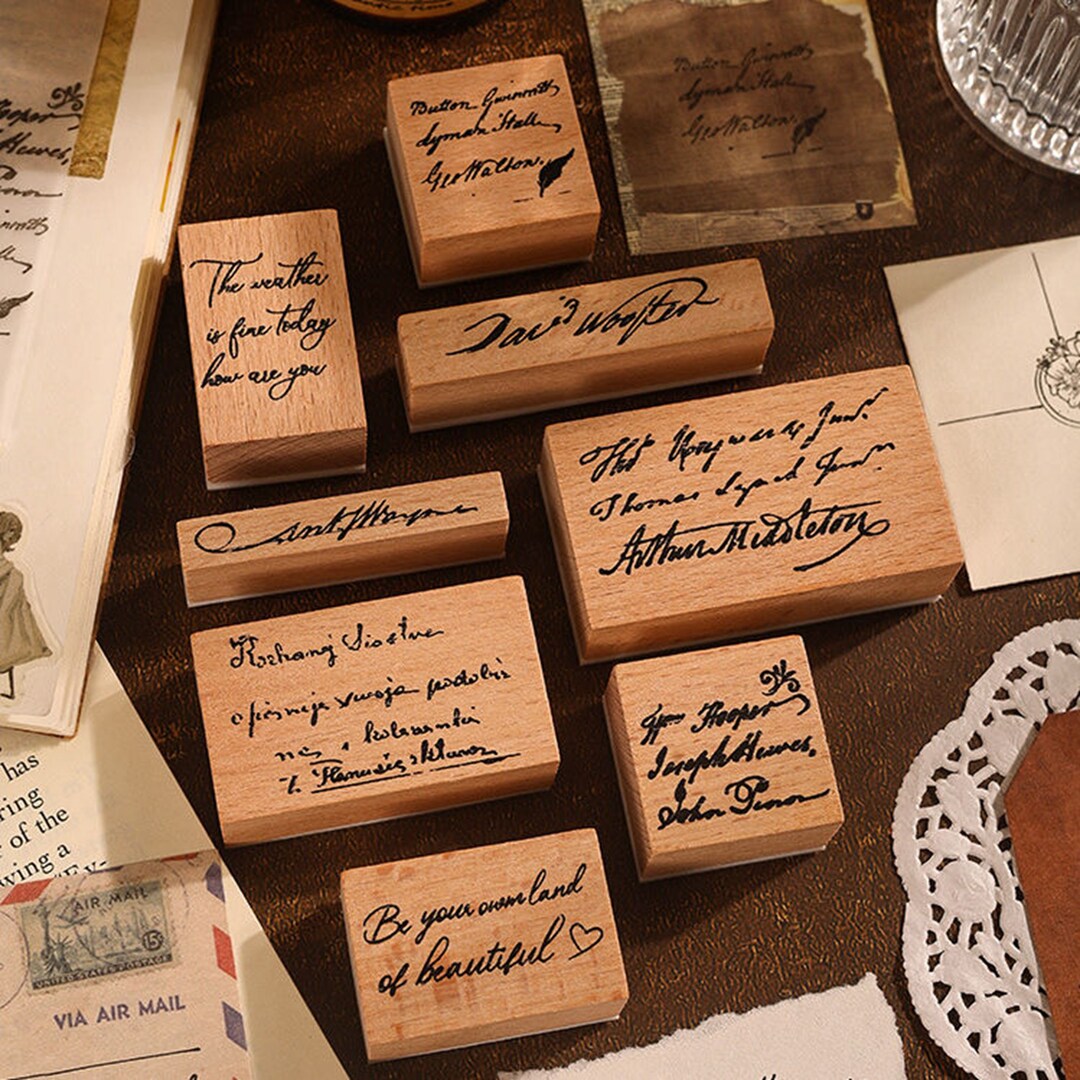 Button Gwinnett
Lyman Hall
Geo Walton.
Button Gwinnett
Lyman Hall
Geo Walton.
The weather
is fine today
how are you
David Wooster
Anty Wayne
Thos Heyward Junr.
Thomas Lynch Junr.
Arthur Middleton
Kochany
swoja
Wm Hooper
Joseph Hewes,
John Penn
Be your own land
of beautiful
Hooper
Hewes,
has
ring
of the
ving a
"Ex-
AIR MAIL
15¢
UNITED STATES POSTAGE
VIA AIR MAIL